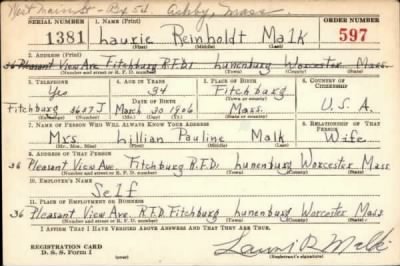 West Main St - Box 54 Ashby, Mass
SERIAL NUMBER 1. NAME (Print) ORDER NUMBER
1381 Laurie Reinholdt Malk 597
(First) (Middle) (Last)
2. ADDRESS (Print)
36 Pleasant View Ave Fitchburg R.F.D.1 Lunenburg Worcester Mass.
(Number and street or R. F. D. number) (Town) (County) (State)
3. TELEPHONE 4. AGE IN YEARS 5. PLACE OF BIRTH 6. COUNTRY OF CITIZENSHIP
Yes 34 Fitchburg
(Town or county)
DATE OF BIRTH
Fitchburg 3657 J March 30 1906 Mass. U.S.A.
(Exchange) (Number) (Mo.) (Day) (Yr.) (State or country)
7. NAME OF PERSON WHO WILL ALWAYS KNOW YOUR ADDRESS 8. RELATIONSHIP OF THAT PERSON
Mrs Lillian Pauline Malk Wife
(Mr., Mrs., Miss) (First) (Middle) (Last)
9. ADDRESS OF THAT PERSON
36 Pleasant View Ave Fitchburg R.F.D.1 Lunenburg Worcester Mass
(Number and street or R. F. D. number) (Town) (County) (State)
10. EMPLOYER'S NAME
Self
11. PLACE OF EMPLOYMENT OR BUSINESS
36 Pleasant View Ave R.F.D. Fitchburg Lunenburg Worcester Mass
(Number and street or R. F. D. number) (Town) (County) (State)
I AFFIRM THAT I HAVE VERIFIED ABOVE ANSWERS AND THAT THEY ARE TRUE.
REGISTRATION CARD
D. S. S. Form 1 Lauri R Malk
(Registrant's signature)